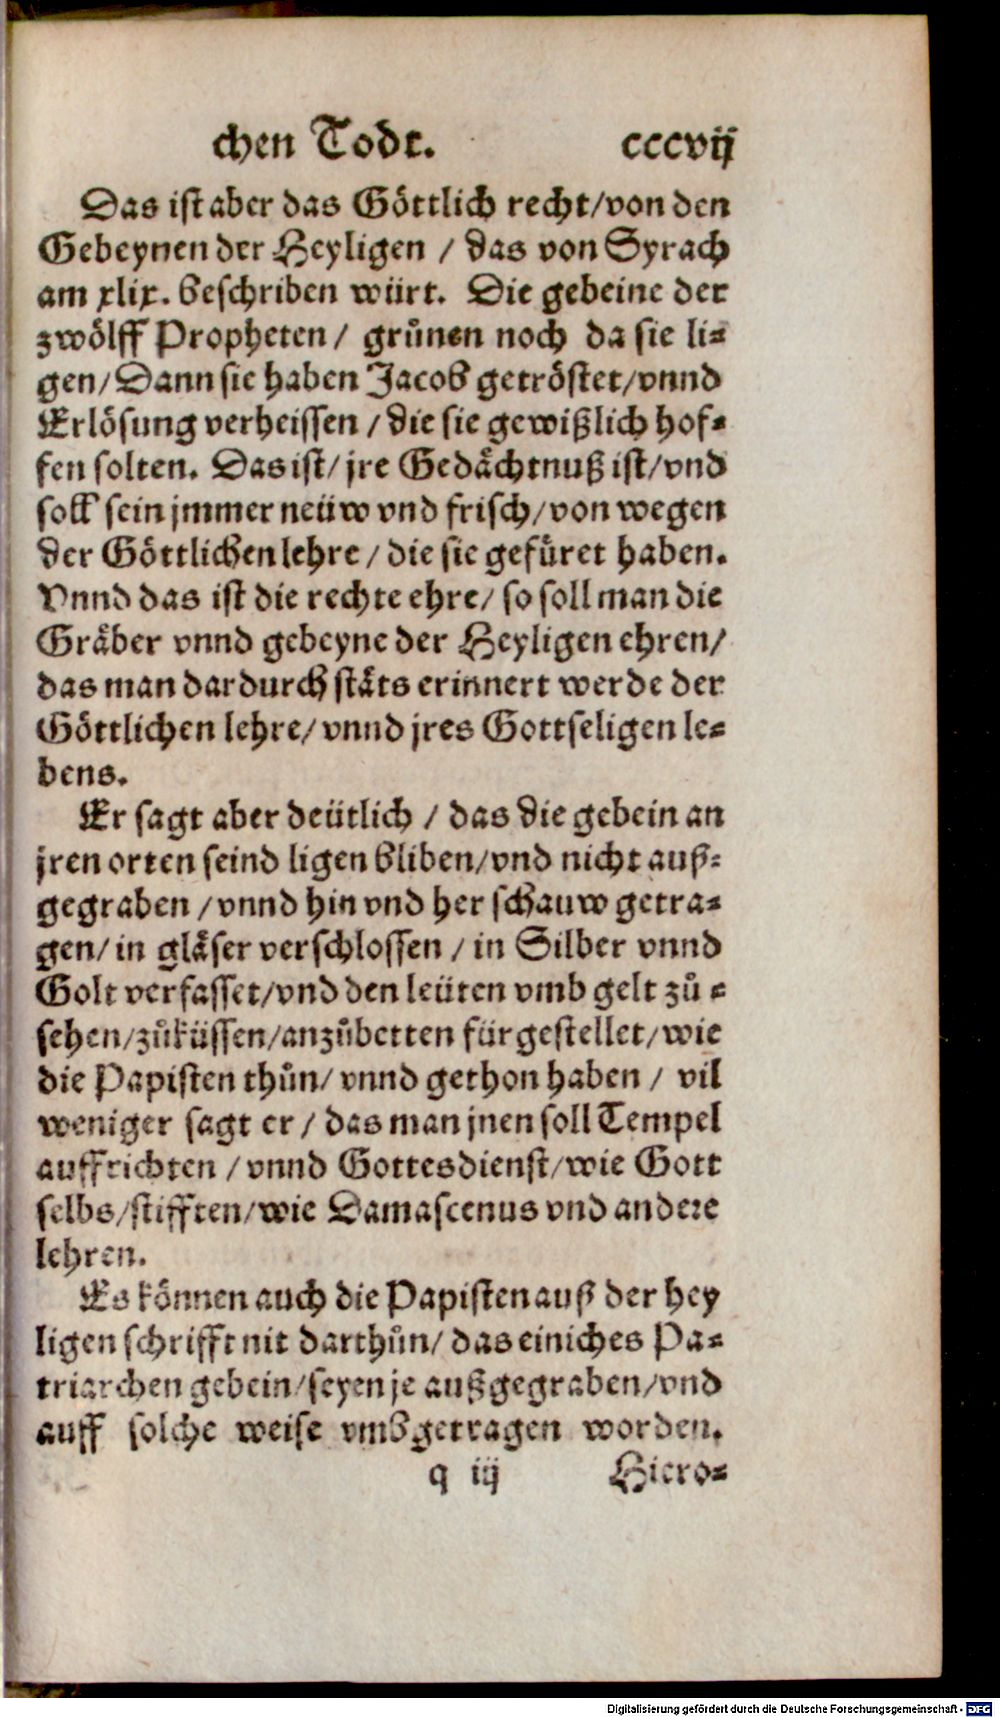 chen Todt. cccvij
Das ist aber das Göttlich recht/von den
Gebeynen der Heyligen / das von Syrach
am xlix. beschriben würt. Die gebeine der
zwölff Propheten/ grůnen noch da sie li⸗
gen/Dann sie haben Jacob getröstet/vnnd
Erlösung verheissen / die sie gewißlich hof⸗
fen solten. Das ist/ jre Gedåchtnuß ist/vnd
soll sein jmmer neüw vnd frisch/von wegen
der Göttlichen lehre / die sie gefüret haben.
Vnnd das ist die rechte ehre/ so soll man die
Gråber vnnd gebeyne der Heyligen ehren/
das man dardurch ståts erinnert werde der
Göttlichen lehre/ vnnd jres Gottseligen le⸗
bens.
Er sagt aber deütlich / das die gebein an
jren orten seind ligen bliben/vnd nicht auß⸗
gegraben / vnnd hin vnd her schauw getra⸗
gen/ in glåser verschlossen / in Silber vnnd
Golt verfasset/vnd den leüten vmb gelt zů⸗
sehen/zůküssen/anzůbetten für gestellet/wie
die Papisten thůn/ vnnd gethon haben / vil
weniger sagt er / das man jnen soll Tempel
auffrichten / vnnd Gottesdienst/wie Gott
selbs/stifften/wie Damascenus vnd andere
lehren.
Es können auch die Papisten auß der hey
ligen schrifft nit darthůn/ das einiches Pa⸗
triarchen gebein/seyen je außgegraben/vnd
auff solche weise vmbgetragen worden.
q iij Hiero⸗
Digitalisierung gefördert durch die Deutsche Forschungsgemeinschaft - DFG